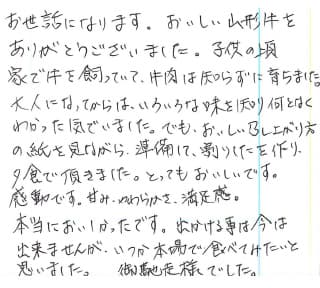 お世話になります。おいしい山形牛を
ありがとうございました。子供の頃
家で牛を飼っていて、牛肉は知らずに育ちました。
大人になってからは、いろいろな味を知り何となく
わかった気でいました。でも、おいしい召し上がり方
の紙を見ながら、準備して、割りしたを作り、
夕食で頂きました。とってもおいしいです。
感動です。甘み・やわらかさ、満足感。
本当においしかったです。出かける事は今は
出来ませんが、いつか本場で食べてみたいと
思いました。 御馳走様でした。